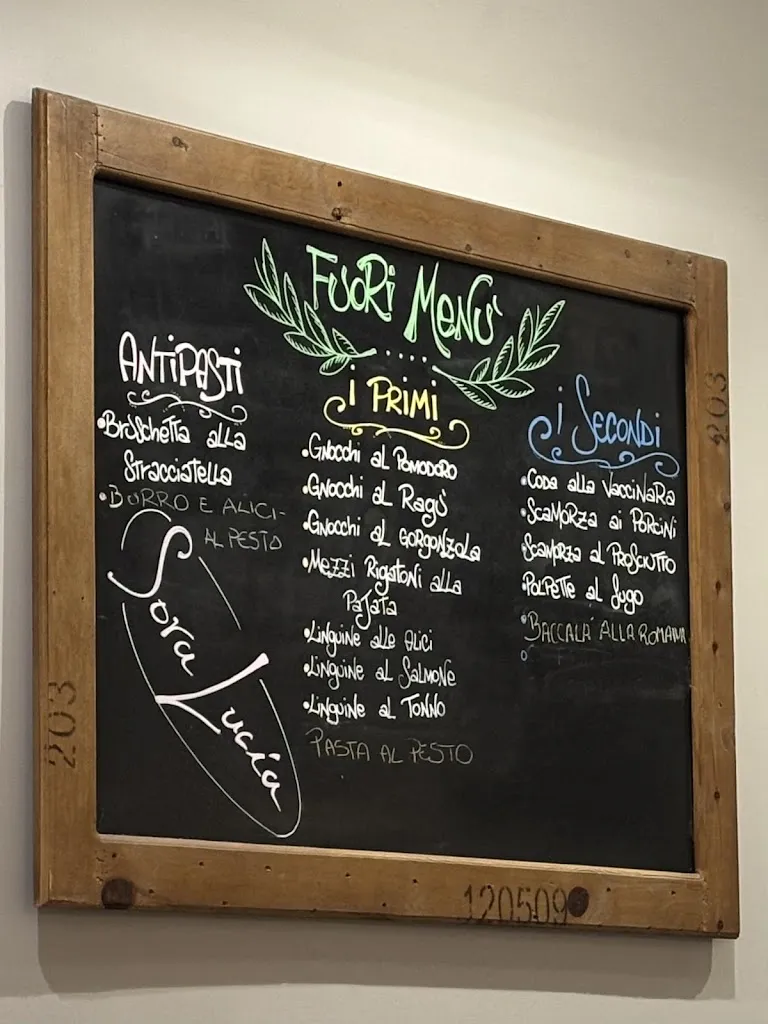 FUORI MENÙ
ANTIPASTI
• BRUSCHETTA ALLA
STRACCIATELLA
• BURRO E ALICI-
AL PESTO
Sora Lucia
I PRIMI
• GNOCCHI AL POMODORO
• GNOCCHI AL RAGÙ
• GNOCCHI AL GORGONZOLA
• MEZZI RIGATONI ALLA
PAJATA
• LINGUINE ALLE ALICI
• LINGUINE AL SALMONE
• LINGUINE AL TONNO
PASTA AL PESTO
I SECONDI
• CODA ALLA VACCINARA
• SCAMORZA AI PORCINI
• SCAMORZA AL PROSCIUTTO
• POLPETTE AL SUGO
• BACCALA' ALLA ROMANA
203
203
120509